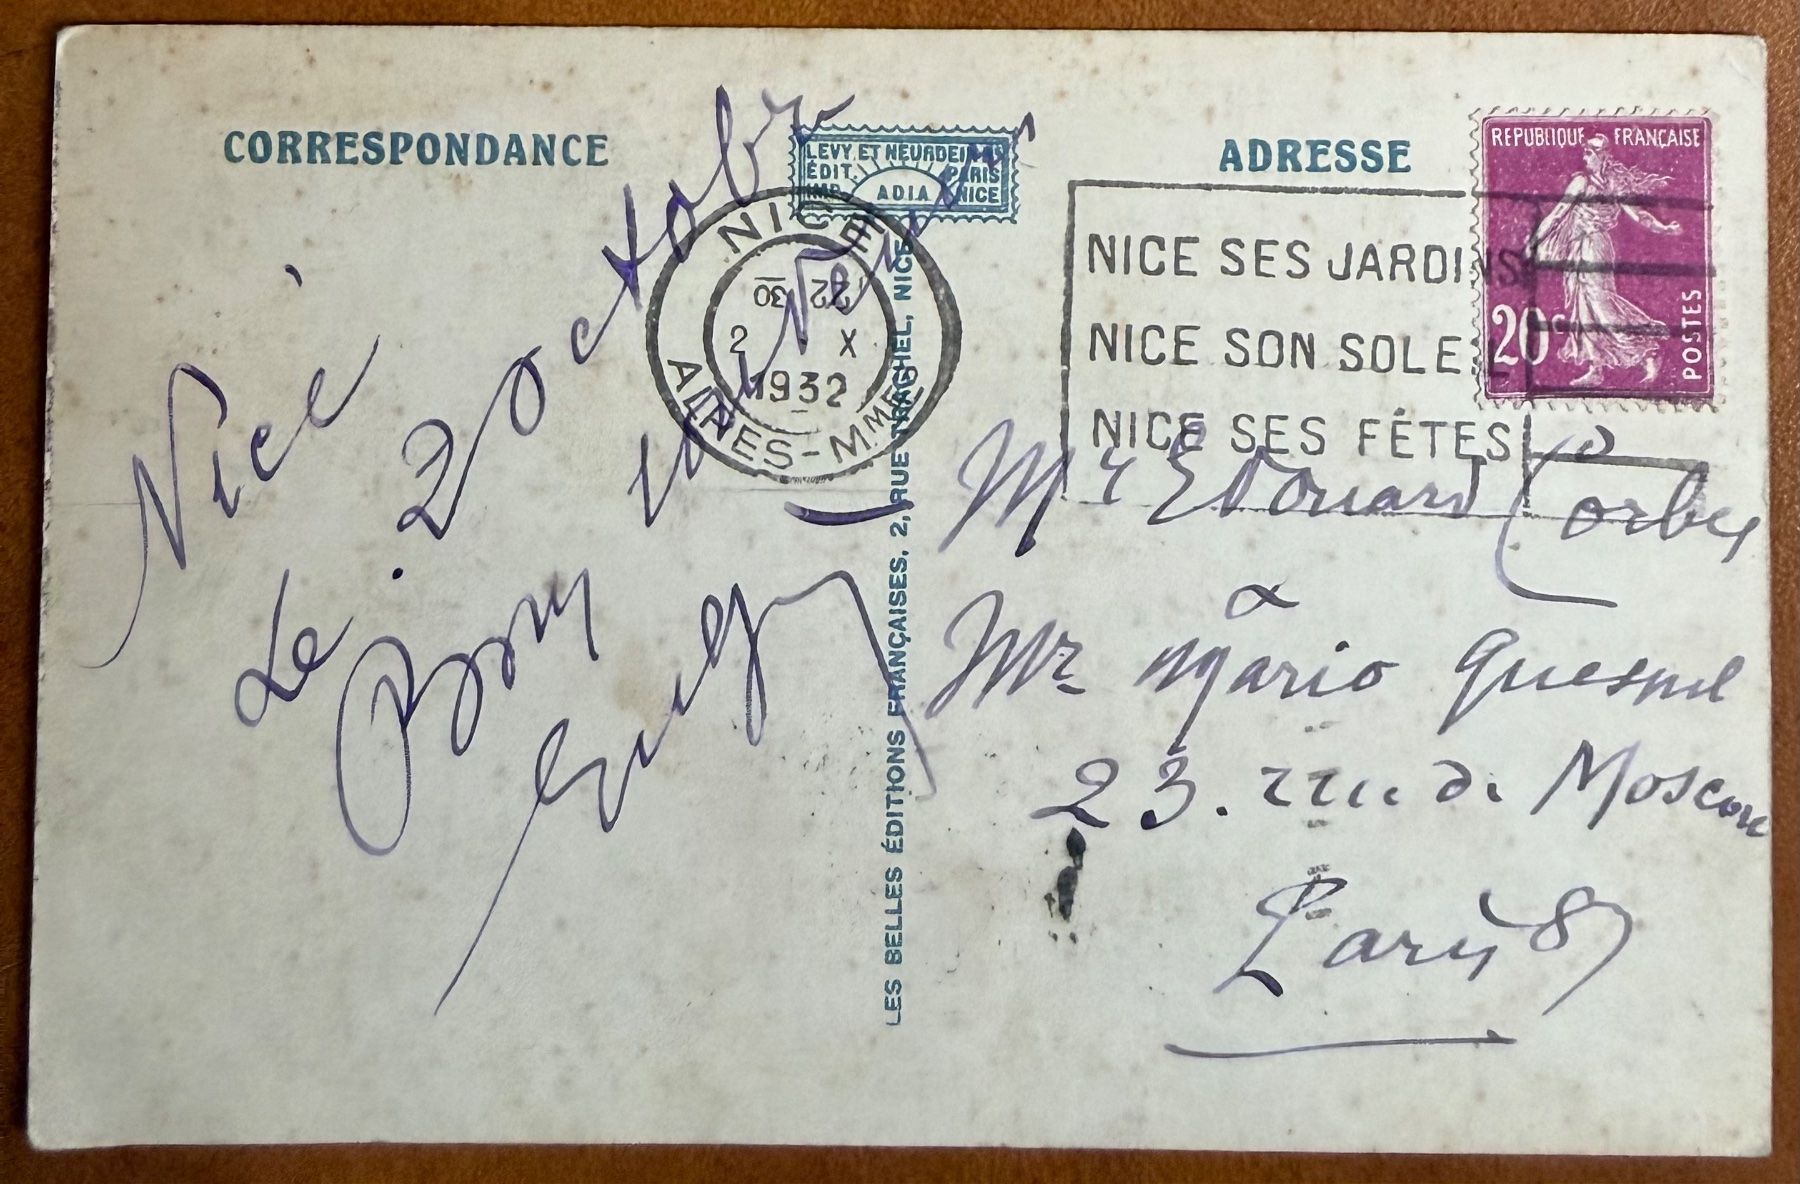 CORRESPONDANCE
Nice
Le 2 octobre
Bon souvenir
LEVY ET NEURDEIN
ÉDIT. PARIS
IMP. ADIA NICE
LES BELLES ÉDITIONS FRANÇAISES, 2, RUE TRACHEL, NICE
NICE
22 30
2 X
1932
ALPES-MMES
ADRESSE
NICE SES JARDINS
NICE SON SOLEIL
NICE SES FÊTES
REPUBLIQUE FRANÇAISE
20c
POSTES
Mr Edouard
Mr Mario Quesnel
23. rue de Moscou
Paris 8